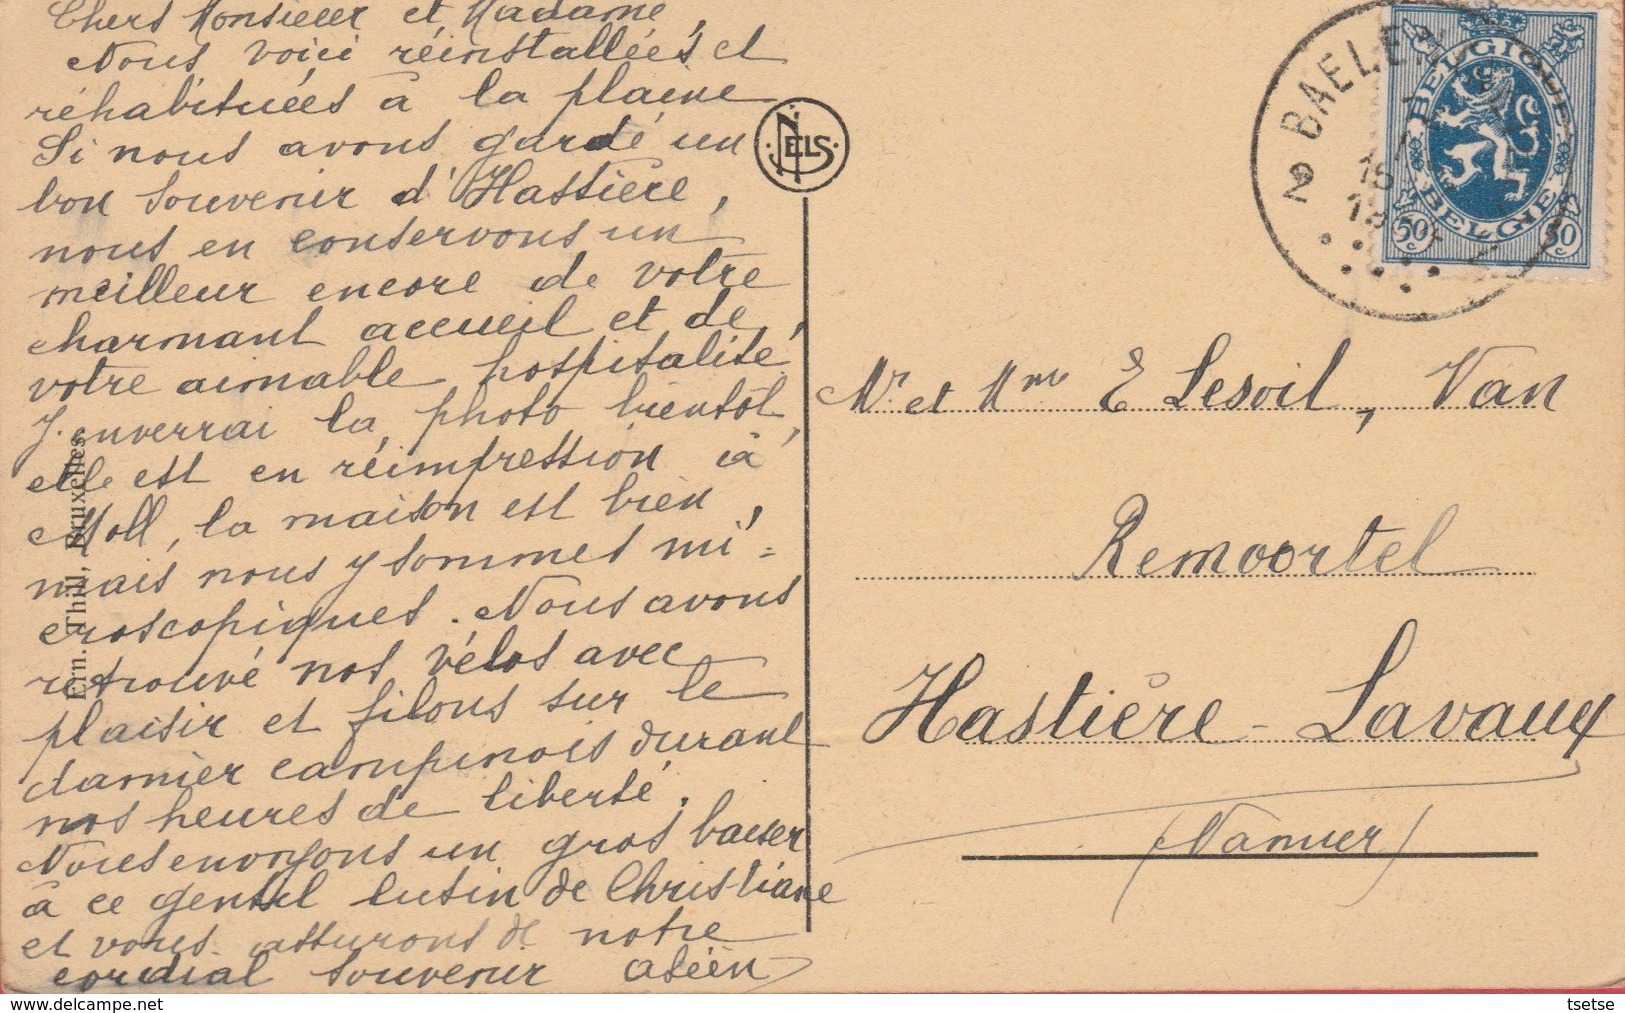 Chers Monsieur et Madame,
Nous voici réinstallées et
réhabituées à la plaine
Si nous avons gardé un
bon souvenir d'Hastière,
nous en conservons un
meilleur encore de votre
charmant accueil et de
votre aimable hospitalité,
J. enverrai la photo bientôt,
elle est en réimpression à
Moll, la maison est bien,
mais nous y sommes mi=
croscopiques. Nous avons
retrouvé nos vélos avec
plaisir et filons sur le
damier campinois durant
nos heures de liberté.
Nous envoyons un gros baiser
à ce gentil lutin de Christiane
et vous assurons de notre
cordial souvenir
Ern. Thill, Bruxelles
NELS
BAELEN
2
BELGIQUE
BELGIË
50 c
50 c
Mr et Mme E Lesoil, Van
Remoortel
Hastière-Lavaux
(Namur)
delcampe.net
tsetse